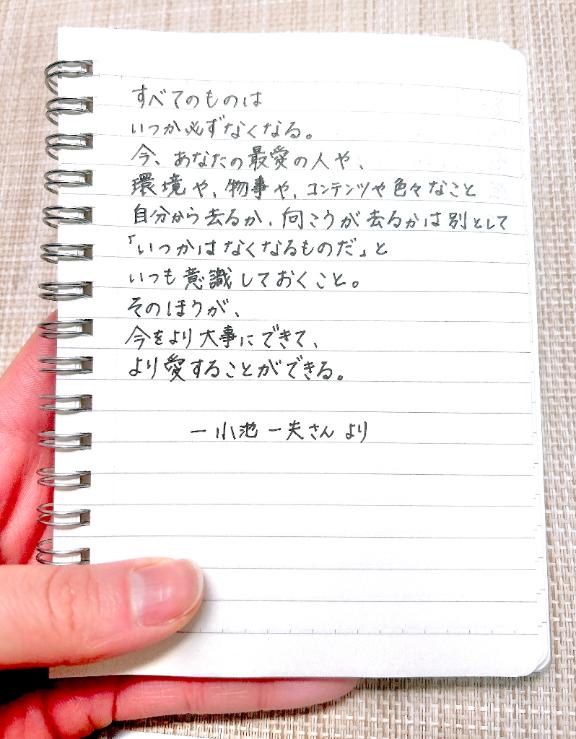 すべてのものは
いつか必ずなくなる。
今、あなたの最愛の人や、
環境や、物事や、コンテンツや色々なこと
自分から去るか、向こうが去るかは別として
「いつかはなくなるものだ」と
いつも意識しておくこと。
そのほうが、
今をより大事にできて、
より愛することができる。
ー小池一夫さんより